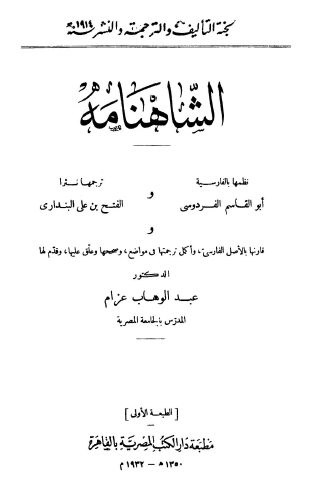 لجنة التأليف والترجمة والنشر سنة ١٩١٤
الشاهنامه
نظمها بالفارسية و ترجمها نثرا
أبو القاسم الفردوسى الفتح بن على البندارى
و
قارنها بالأصل الفارسىّ، وأكمل ترجمتها فى مواضع، وصححها وعلّق عليها، وقدّم لها
الدكتور
عبد الوهاب عزام
المدرّس بالجامعة المصرية
[الطبعة الأولى]
مطبعة دار الكتب المصرية بالقاهرة
١٣٥٠ هـ - ١٩٣٢ م